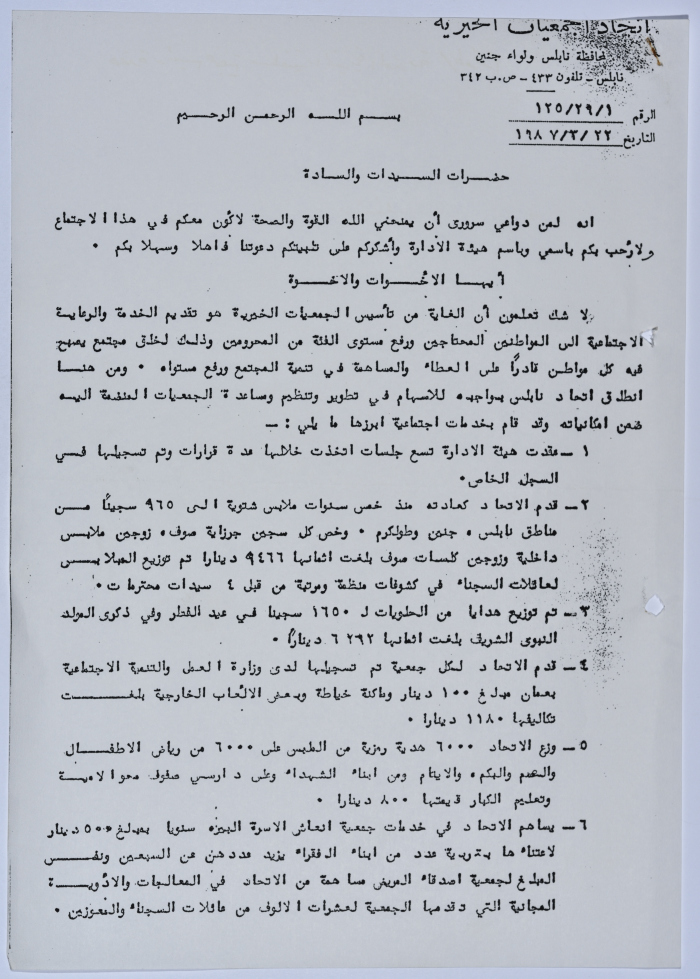 اتحاد الجمعيات الخيرية
لمحافظة نابلس ولواء جنين
نابلس - تلفون ٤٣٣ - ص.ب ٣٤٢
الرقم ١٢٥/٢٩/١
التاريخ ١٩٨٧/٣/٢٢
بسم اللـه الرحمن الرحيم
حضرات السيدات والسادة
انه لمن دواعي سروري أن يمنحني الله القوة والصحة لأكون معكم في هذا الاجتماع
ولأرحب بكم باسمي وباسم هيئة الادارة وأشكركم على تلبيتكم دعوتنا فاهلا وسهلا بكم .
أيها الأخوات والاخوة
لا شك تعلمون أن الغاية من تأسيس الجمعيات الخيرية هو تقديم الخدمة والرعاية
الاجتماعية الى المواطنين المحتاجين ورفع مستوى الفئة من المحرومين وذلك لخلق مجتمع يصبح
فيه كل مواطن قادرًا على العطاء والمساهمة في تنمية المجتمع ورفع مستواه . ومن هنا
انطلق اتحاد نابلس بواجبه للاسهام في تطوير وتنظيم وساعدة الجمعيات المنضمة اليه
ضمن امكانياته وقد قام بخدمات اجتماعية ابرزها ما يلي : -
١ - عقدت هيئة الادارة تسع جلسات اتخذت خلالها عدة قرارات وتم تسجيلها في
السجل الخاص .
٢ - قدم الاتحاد كعادته منذ خمس سنوات ملابس شتوية الى ٩٦٥ سجينًا من
مناطق نابلس ، جنين وطولكرم . وخص كل سجين جرزاية صوف، زوجين ملابس
داخلية وزوجين كلسات صوف بلغت اثمانها ٩٤٦٦ دينارا تم توزيع الملابس
لعائلات السجناء في كشوفات منظمة ومرتبة من قبل ٤ سيدات محترمات .
٣ - تم توزيع هدايا من الحلويات لـ ١٦٥٠ سجينا في عيد الفطر وفي ذكرى المولد
النبوى الشريف بلغت اثمانها ٦٢٩٢ دينارًا .
٤ - قدم الاتحاد لكل جمعية تم تسجيلها لدى وزارة العمل والتنمية الاجتماعية
بعمان مبلغ ١٠٠ دينار وماكنة خياطة وبعض الالعاب الخارجية بلغت
تكاليفها ١١٨٠ دينارا .
٥ - وزع الاتحاد ٦٠٠٠ هدية رمزية من الملبس على ٦٠٠٠ من رياض الاطفال
والصم والبكم، والايتام ومن ابناء الشهداء وعلى دارسي صفوف محو الامية
وتعليم الكبار قيمتها ٨٠٠ دينارا .
٦ - يساهم الاتحاد في خدمات جمعية انعاش الاسرة البيره سنويا بمبلغ ٥٠٠ دينار
لاعتناءها بتربية عدد من ابناء الفقراء يزيد عددهن عن السبعين ونفس
المبلغ لجمعية اصدقاء المريض مساهمة من الاتحاد في المعالجات والأدوية
المجانية التي تقدمها الجمعية لعشرات الالوف من عائلات السجناء والمعوزين .